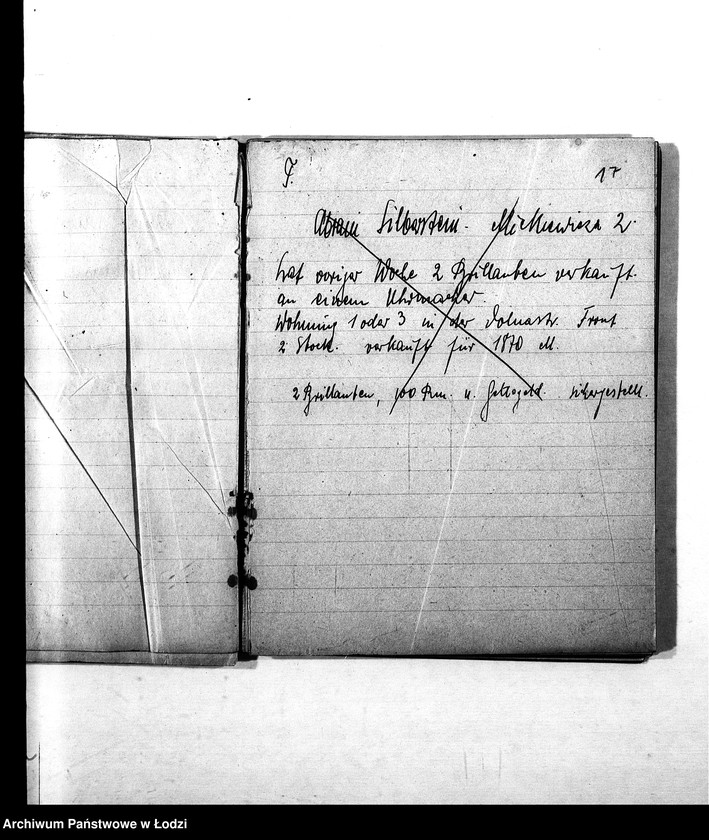 F.
17
Abram Silberstein. Mickiewicza 2.
Hat voriger Woche 2 Brillanten verkauft
an einem Uhrmacher.
Wohnung 1 oder 3 in der Dolnastr. Front
2 Stock. verkauft für 1870 M.
2 Brillanten, 100 Rm. u. Gettogeld. sichergestellt.
Archiwum Państwowe w Łodzi